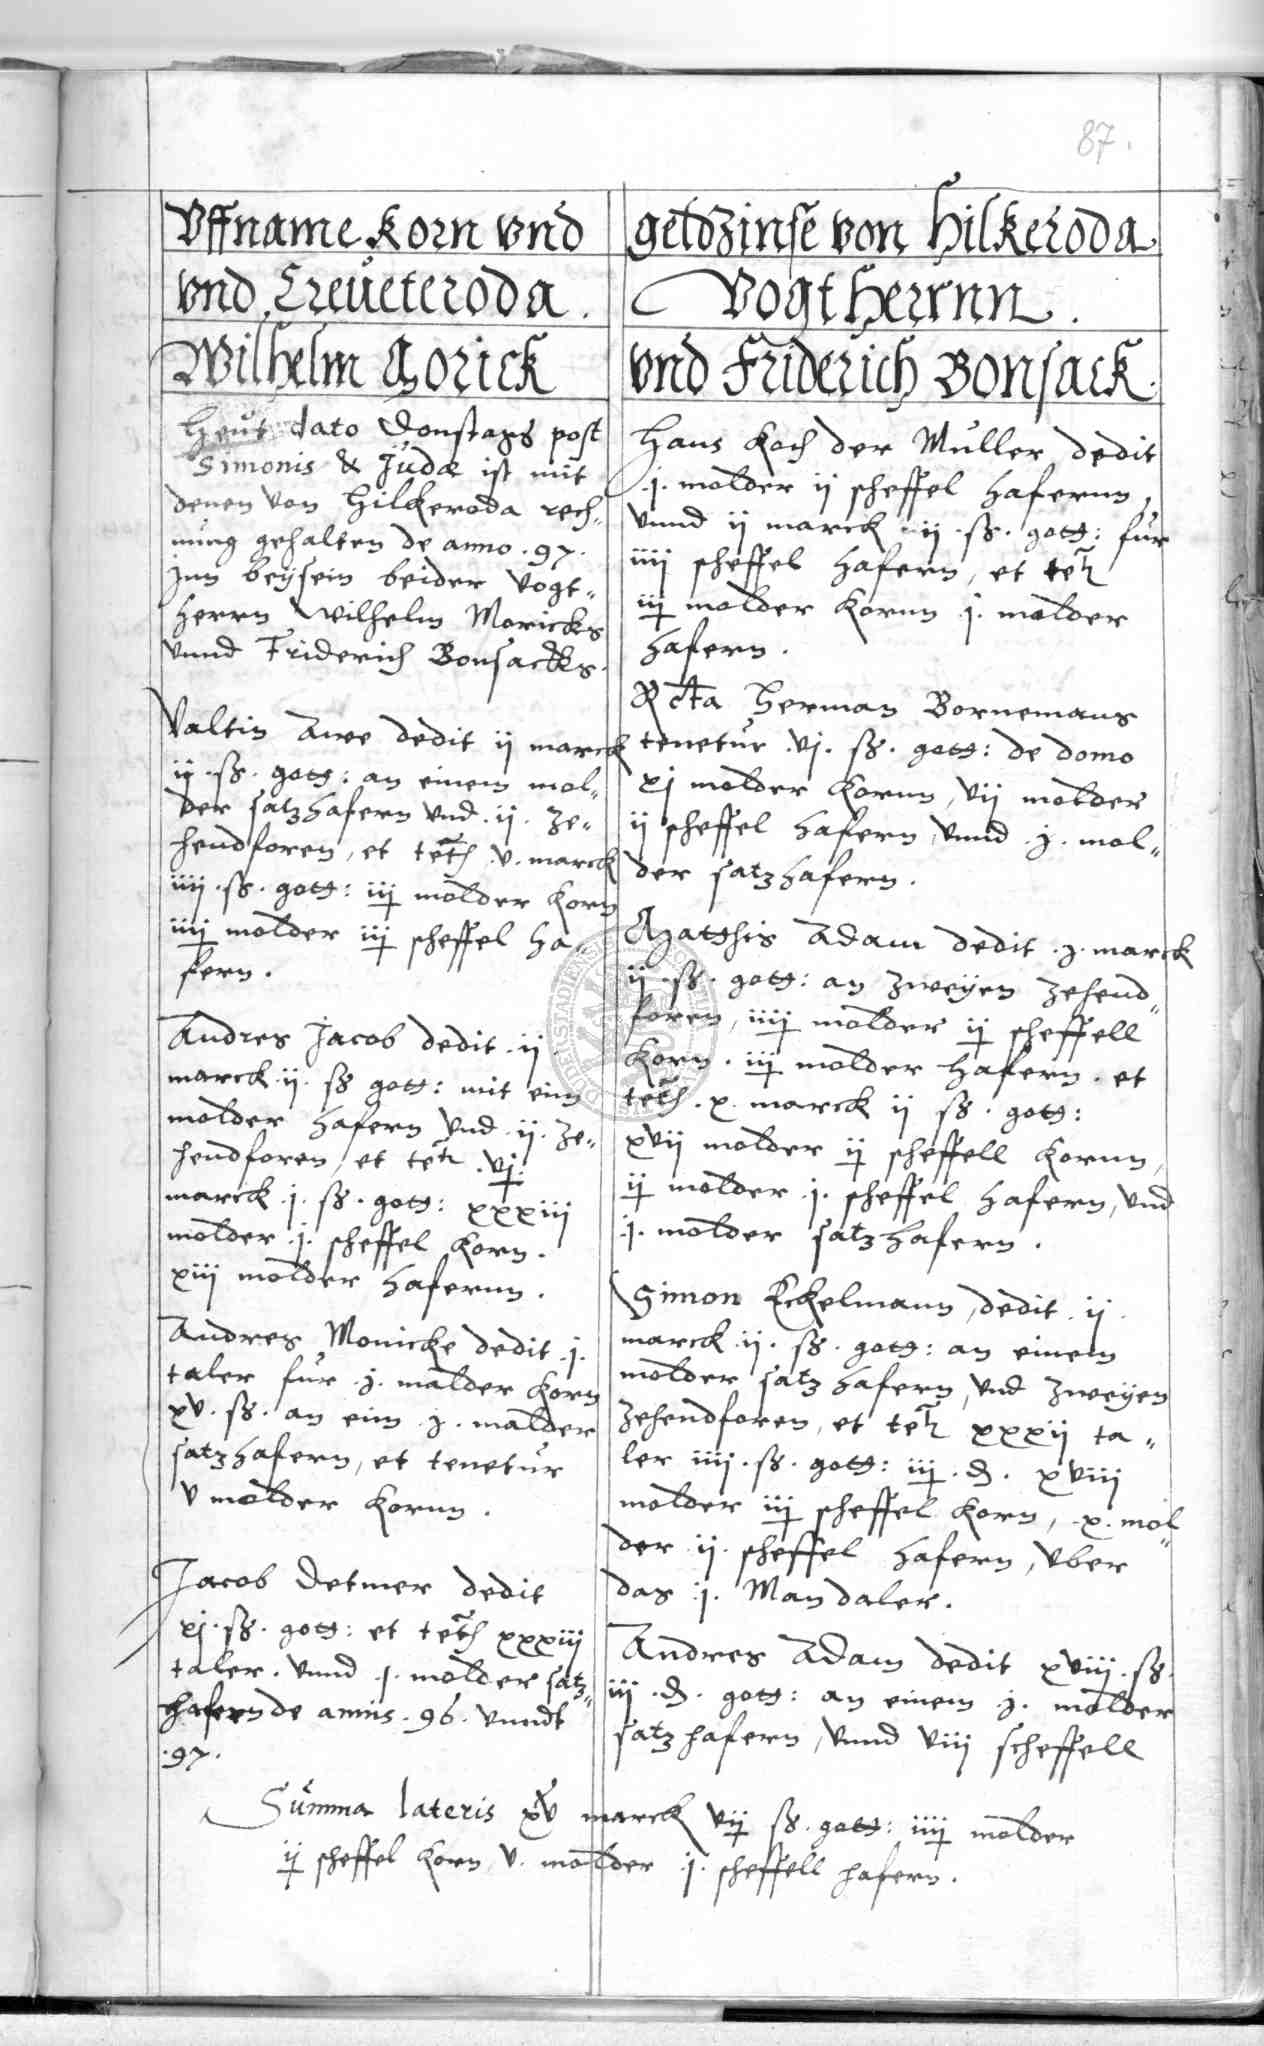 87.
Vffname Korn vnd geldzinse von Hilkeroda
vnd Creueteroda. Vogt Herrnn.
Wilhelm Morick vnd Friderich Bonsack.
Heut dato Donstags post
Simonis & Judæ ist mit
denen von Hilkeroda rech„
nung gehalten de anno .97.
Jnn beÿsein beider Vogt„
herrn Wilhelm Moricks
vnnd Friderich Bonsackks.
Valtin Awe dedit ij marck
ij .ß. gott: an einem mol„
der satzhafern vnd .ij. Ze„
hendforen, et tet̃h .v. marck
iiij .ß. gott: iij molder Korn
iiij molder iij scheffel Ha„
fern.
Andres Jacob dedit .ij.
marck .ij. ß gott: mit eim
molder Hafern vnd .ij. Ze„
hendforen, et tet̃r .vj.
marck .j. ß. gott: xxxiij
molder .j. scheffel Korn.
xiij molder Hafernn.
Andres Monicke dedit .j.
taler fur .j. malder Korn
xv. ß. an eim .j. malder
satzhafern, et tenetur
v molder Kornn.
Jacob Detmer dedit
xj. ß. gott: et tet̃h xxxiij
taler. vnnd .j. molder satz„
hafern de annis .96. vnndt
.97.
Hans Koch der Muller dedit
.j. molder ij scheffel Hafernn,
vnnd ij marck iij .ß. gott: fur
iiij scheffel Hafern, et tet̃r
iij molder Kornn .j. molder
Hafern.
Rcta Herman Bornemans
tenetur .vj. ß. gott: de domo
xj molder Kornn, vij molder
ij scheffel Hafern, vnnd .j. mol„
der satzhafern.
Matthis Adam dedit .j. marck
ij .ß. gott: an zweÿen zehend„
foren, iiij molder ij scheffell
Korn. iij molder Hafern. et
tet̃h .x. marck ij ß. gott:
xvij molder ij scheffell Kornn,
ij molder .j. scheffel Hafern, vnd
.j. molder satzhafern.
Simon Eckelmann, dedit .ij.
marck .ij. ß. gott: an einem
molder satzhafern, vnd zweÿen
zehendforen, et tet̃r xxxij ta„
ler iiij. ß. gott: iij .₰. xviij
molder iij scheffel Korn, .x. mol„
der ij. scheffel Hafern, vber
das .j. Mandaler.
Andres Adam dedit xviij. ß.
iij .₰. gott: an einem .j. molder
satzhafern, vnnd viij scheffell
Summa lateris xv marck vij ß. gott: iiij molder
ij scheffel Korn, v. molder .j. scheffell hafern.